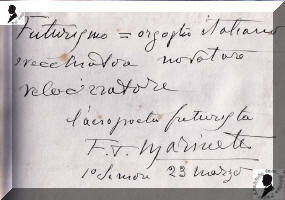 Futurismo = orgoglio italiano
svecchiatore novatore
velocizzatore
l'aeropoeta futurista
F. T. Marinetti
23 marzo